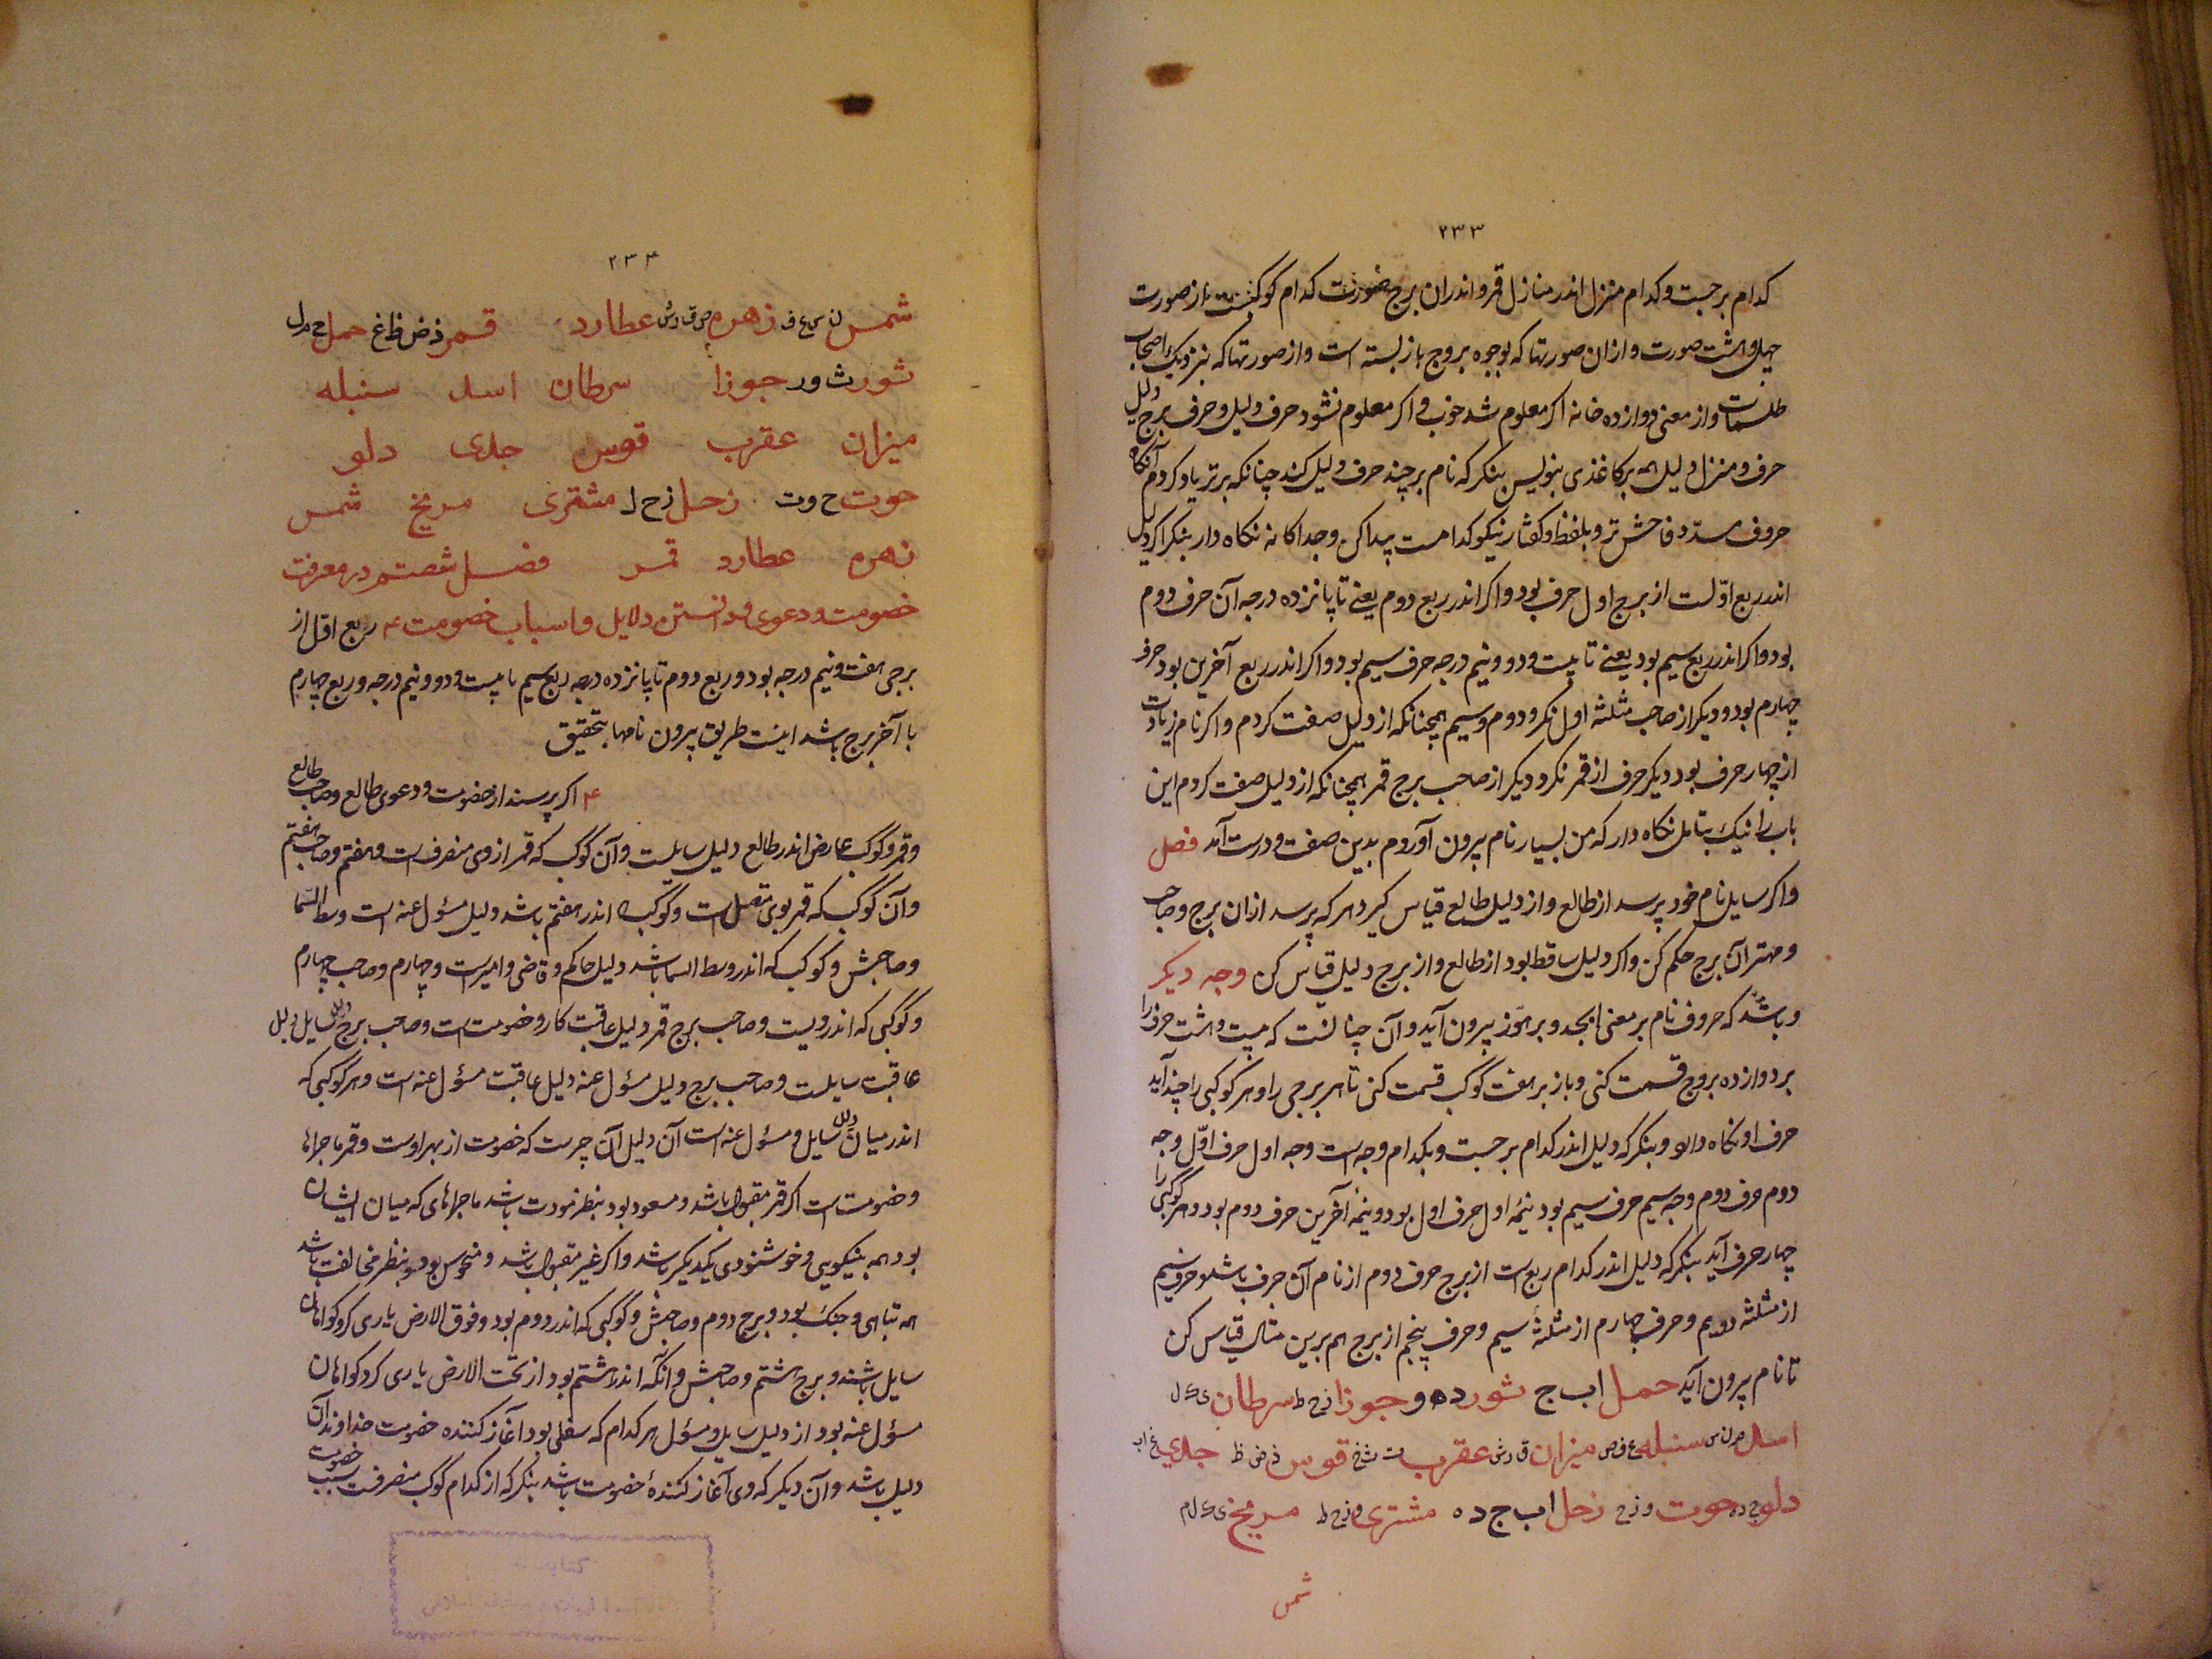 ۲۳۳
کدام برجست و کدام منزل اندر منازل قمر و اندران برج صورت کدام کوکبست از صورت
چهل و هشت صورت و ازان صورتها که بوجوه بروج باز بسته است و از صورتها که بنزدیک اصحاب
طلسمات و از معنی دوازده خانه اکر معلوم شد خوب و اکر معلوم نشود حرف دلیل و حرف برج دلیل
حرف و منزل دلیل همه بر کاغذی بنویس بنکر که نام بر چند حرف دلیل کند چنانکه برتر یاد کردم آنکاه
حروف فاحش تر و بلفظ و کفتار نیکو کدامست پیدا کن و جداکانه نکاه دار بنکر اکر دلیل
اندر ربع اوّلست از برج اول حرف بود و اکر اندر ربع دوم یعنے تا پانزده درجه آن حرف دوم
بود و اکر اندر ربع سیم بود یعنے تا بیست و دو و نیم درجه حرف سیم بود و اکر اندر ربع آخرین بود حرف
چهارم بود و دیکر از صاحب مثلثه اول نکر و دوم و سیم همچنانکه از دلیل صفت کردم و اکر نام زیادت
از چهار حرف بود دیکر حرف از قمر نکر و دیکر از صاحب برج قمر همچنانکه از دلیل صفت کردم این
باب را نیک بتامل نکاه دار که من بسیار نام بیرون آوردم بدین صفت و درست آمد فصل
و اکر سایل نام خود پرسد از طالع و از دلیل طالع قیاس کیر و هر که پرسد ازان برج و صاحب
و مهتر آن برج حکم کن و اکر دلیل ساقط بود از طالع و از برج دلیل قیاس کن وجه دیکر
و باشد که حروف نام بر معنی ابجد و بر هوّز بیرون آید و آن چنانست که بیست و هشت حرف را
بر دوازده بروج قسمت کنی و باز بر هفت کوکب قسمت کنی تا هر برجی را و هر کوکبی را چند آید
حرف او نکاه دار و بنکر که دلیل اندر کدام برجست و بکدام وجه است وجه اول حرف اوّل وجه
دوم حرف دوم وجه سیم حرف سیم بود نیمهٔ اول حرف اول بود و نیمهٔ آخرین حرف دوم بود و هر کوکبی را
چهار حرف آید بنکر که دلیل اندر کدام ربع است از برج حرف دوم از نام آن حرف باشد و حرف سیم
از مثلثه دویم و حرف چهارم از مثلثهٔ سیم و حرف پنجم از برج هم برین مثال قیاس کن
تا نام بیرون آید حمل ا ب ج ثور د ه و جوزا ز ح ط سرطان ی ک ل
اسد م ن س سنبله ع ف ص میزان ق ر ش عقرب ت ث خ قوس ذ ض ظ جدی غ ا ب
دلو ج د ه حوت و ز ح زحل ا ب ج د ه مشتری و ز ح ط مریخ ی ک ل م
شمس
۲۳۴
شمس ن س ع ف زهره ص ق ر ش عطارد قمر ذ ض ظ غ حمل ح م ل
ثور ث و ر جوزا سرطان اسد سنبله
میزان عقرب قوس جدی دلو
حوت ح و ت زحل ز ح ل مشتری مریخ شمس
زهره عطارد قمر فصل شصتم در معرفت
خصومت و دعوی و دانستن دلایل و اسباب خصومت ربع اوّل از
برجی هفت و نیم درجه بود و ربع دوم تا پانزده درجه ربع سیم تا بیست و دو و نیم درجه و ربع چهارم
با آخر برج باشد اینست طریق بیرون نامها بتحقیق
اکر پرسند از خصومت و دعوی طالع و صاحب طالع
و قمر و کوکب عارض اندر طالع دلیل سایلست و آن کوکب که قمر از وی منصرف است و هفتم و صاحب هفتم
و آن کوکب که قمر بوی متصل است و کوکب اندر هفتم باشد دلیل مسؤل عنه است وسط السّما
و صاحبش و کوکب که اندر وسط السما باشد دلیل حاکم و قاضی و امیرست و چهارم و صاحب چهارم
و کوکبی که اندرویست و صاحب برج قمر دلیل عاقبت کار و خصومت است و صاحب برج دلیل سایل دلیل
عاقبت سایلست و صاحب برج دلیل مسؤل عنه دلیل عاقبت مسؤل عنه است و هر کوکبی که
اندر میان دلیل سایل و مسؤل عنه است آن دلیل آن چیزست که خصومت از بهر اوست و قمر ماجراها
و خصومت است اکر قمر مقبول باشد و مسعود بود بنظر مودت باشد ماجراهای که میان ایشان
بود همه بنیکویی و خوشنودی یکدیکر باشد و اکر غیر مقبول باشد و منحوس بود و بنظر مخالفت باشد
همه تباهی و جنک بود و برج دوم و صاحبش و کوکبی که اندر دوم بود و فوق الارض یاری کر و کواهان
سایل باشند و برج هشتم و صاحبش و آنکه اندر هشتم بود از تحت الارض یاری کر و کواهان
مسؤل عنه بود از دلیل سایل و مسؤل هر کدام که سفلی بود آغاز کننده خصومت خداوند آن
دلیل باشد و آن دیکر که وی آغاز کنندهٔ خصومت باشد بنکر که از کدام کوکب منصرفست سبب خصومت